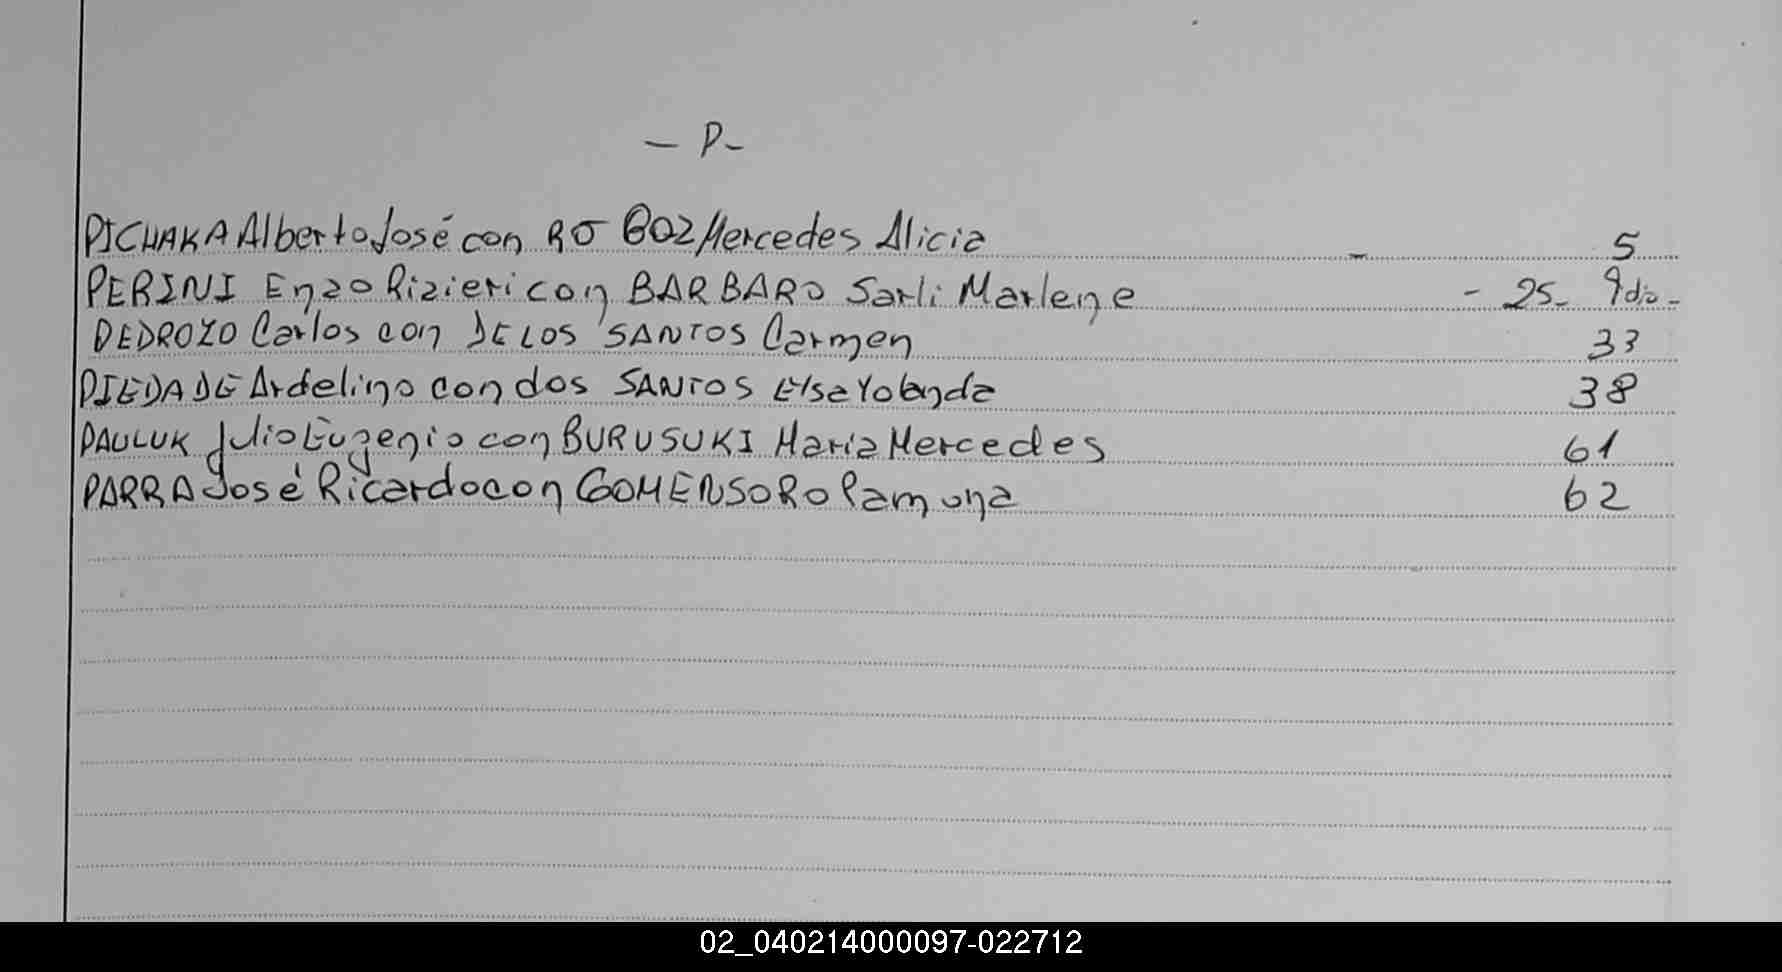 - P-
PICHAKA Alberto José con RO GOZ Mercedes Alicia - 5
PERINI Enzo Rizieri con BARBARO Sarli Marlene - 25-
PEDROZO Carlos con DE LOS SANTOS Carmen 33
PIEDADE Ardelino con dos SANTOS Elsa Yolanda 38
PAULUK Julio Eugenio con BURUSUKI Maria Mercedes 61
PARRA José Ricardo con GOMENSORO Ramona 62
02_040214000097-022712